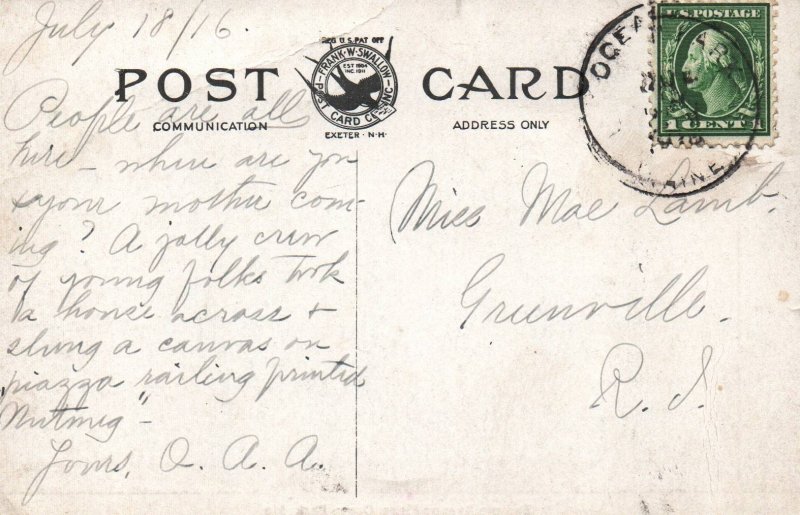 July 18/16.
REG U.S. PAT OFF
FRANK·W·SWALLOW
EST 1904
INC. 1911
POST CARD CO. INC.
EXETER·N·H·
POST CARD
COMMUNICATION
ADDRESS ONLY
OCEAN PARK
MAINE
U.S. POSTAGE
1 CENT 1
People are all
here – when are you
& your mother com-
ing? A jolly crew
of young folks took
a house across &
slung a canvas on
piazza railing printed
"Nutmeg" –
Yours, O. A. A.
Miss Mae Lamb.
Greenville.
R. I.